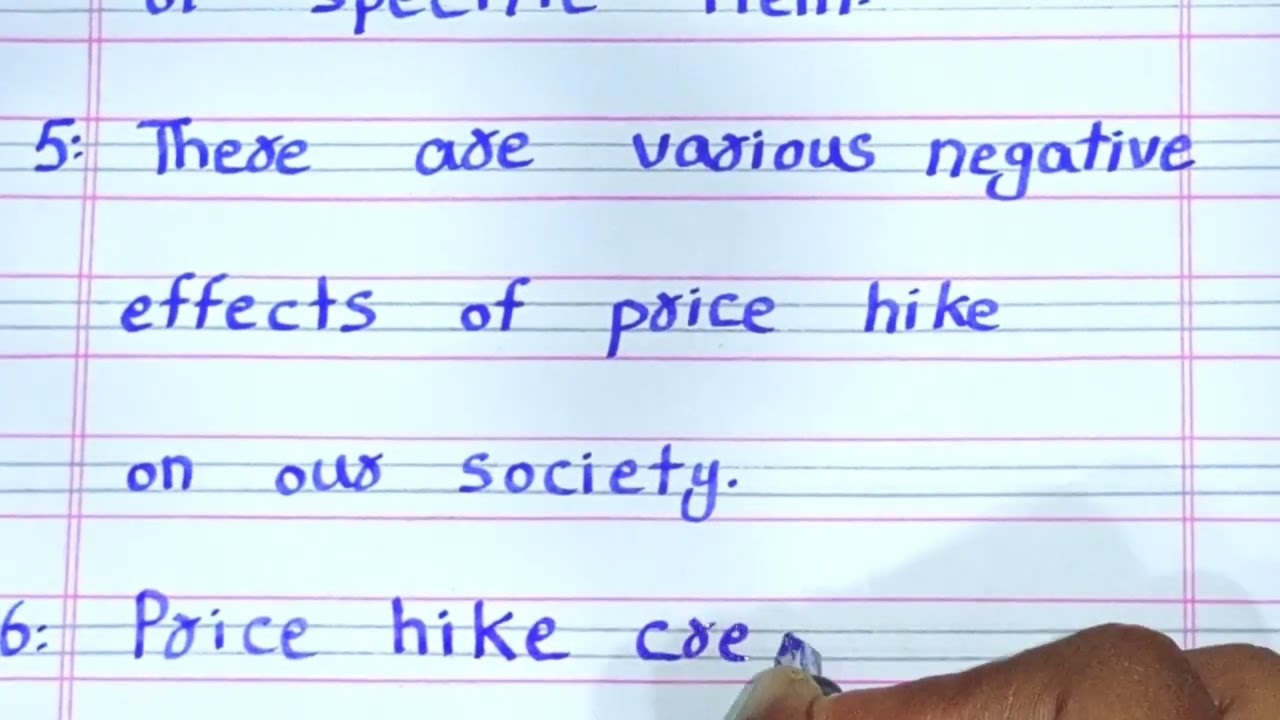 of specific item.
5: There are various negative
effects of price hike
on our society.
6: Price hike cre